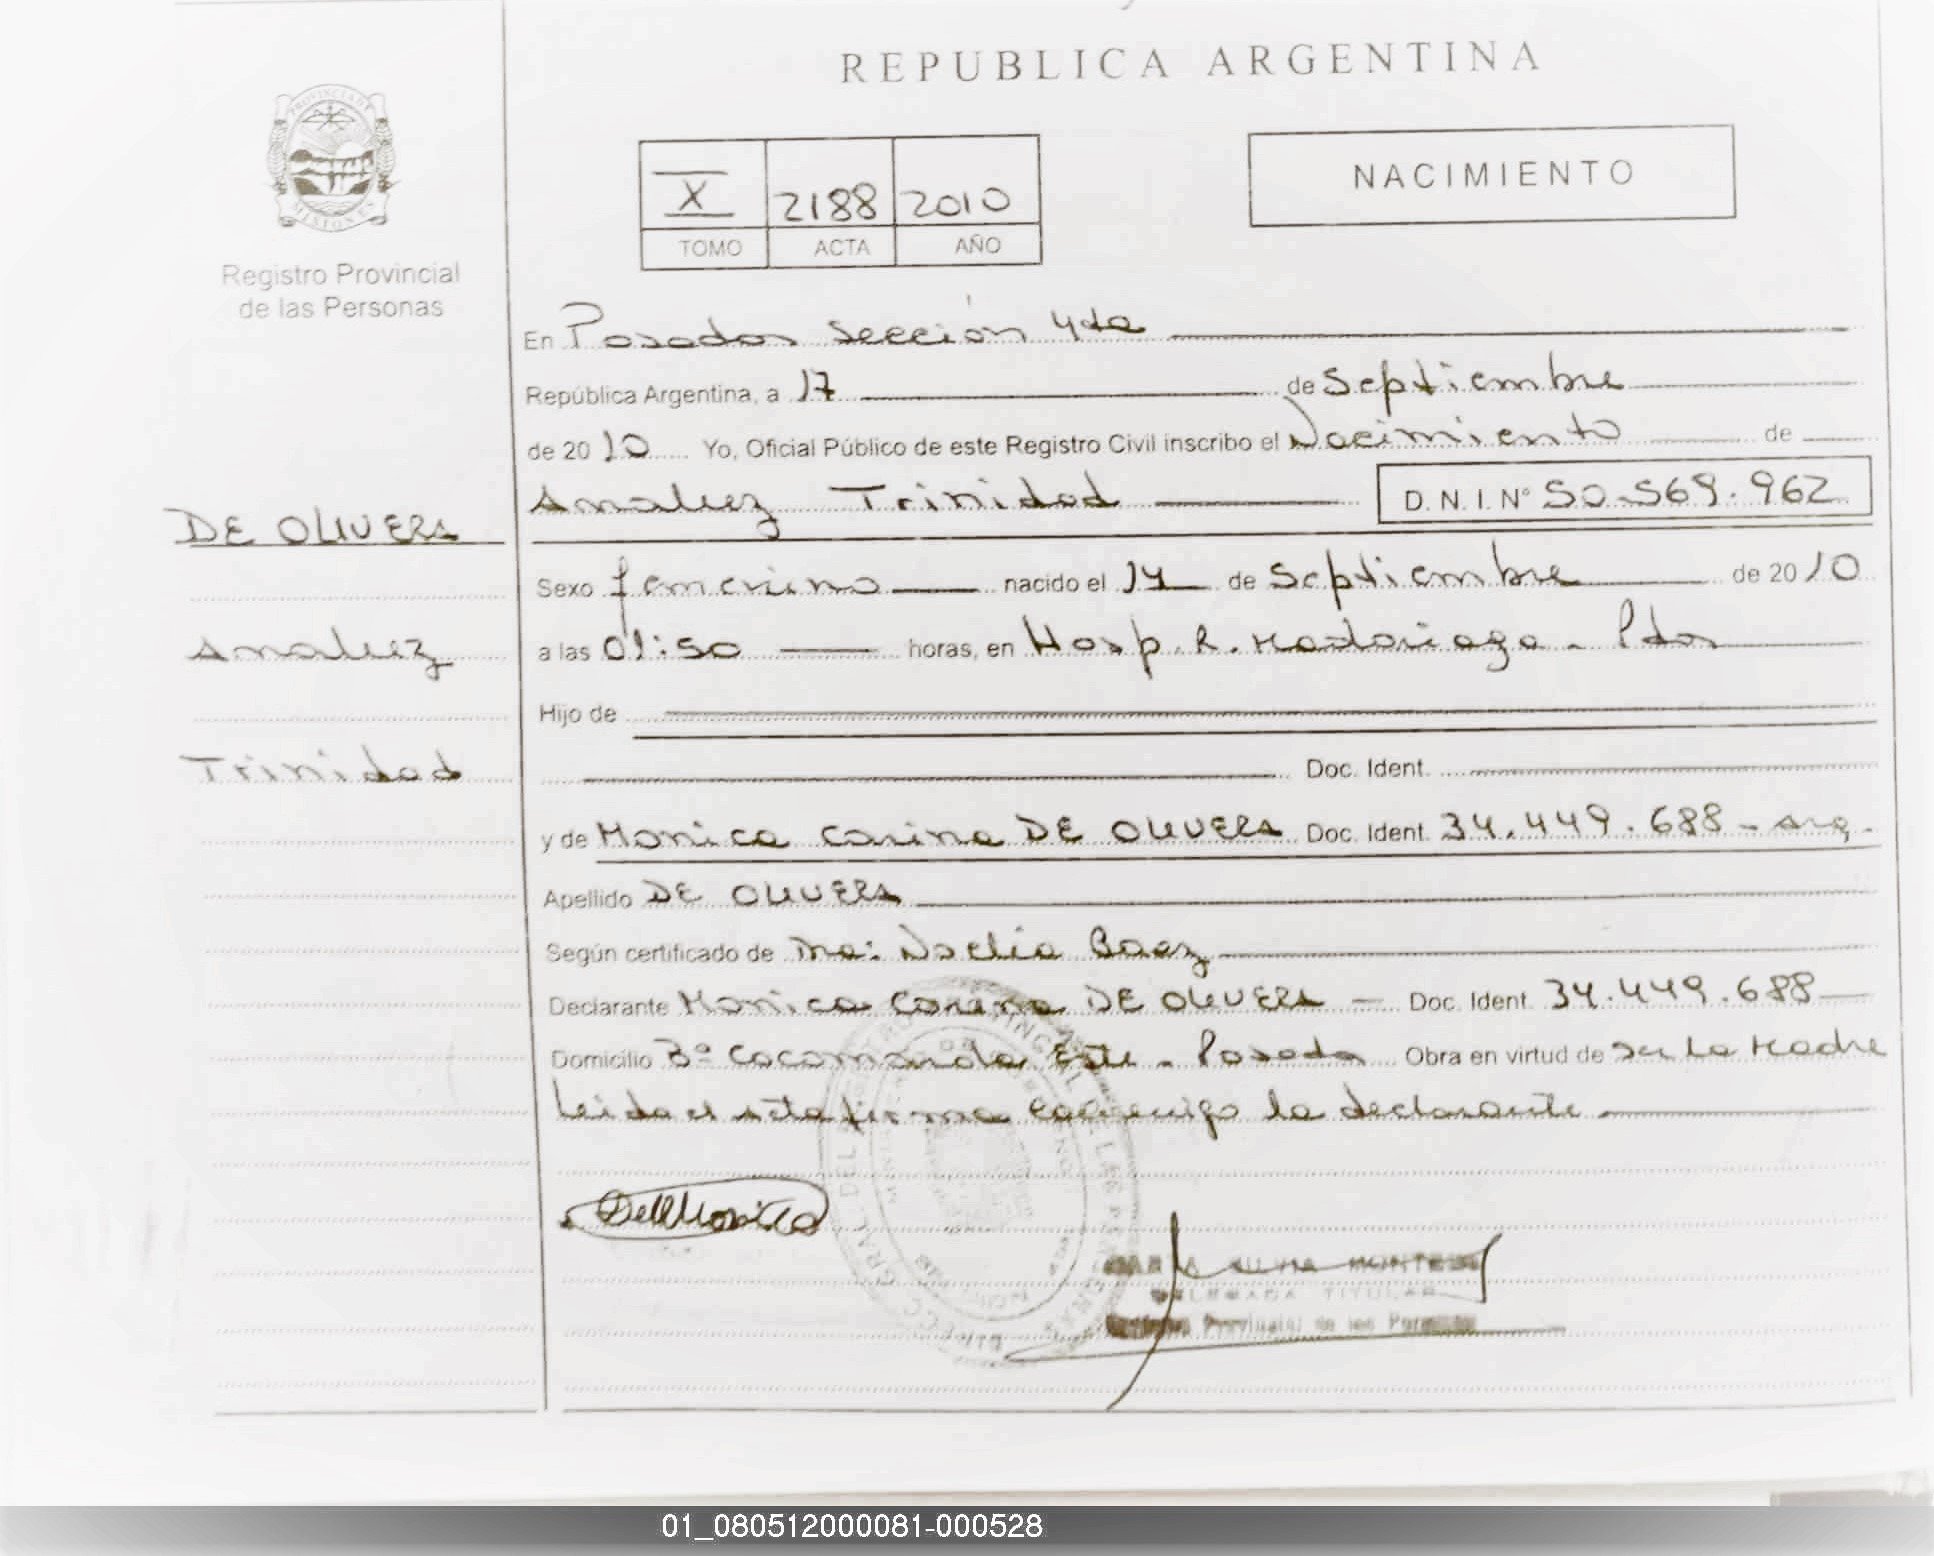 REPUBLICA ARGENTINA
PROVINCIA DE
MISIONES
Registro Provincial
de las Personas
X 2188 2010
TOMO ACTA AÑO
NACIMIENTO
En Posadas Sección 4ta
República Argentina, a 17 de Septiembre
de 2010 Yo, Oficial Público de este Registro Civil inscribo el Nacimiento de
Analuz Trinidad D. N. I. N° 50.569.962
DE OLIVERA
Sexo femenino nacido el 14 de Septiembre de 2010
Analuz
a las 01:50 horas, en Hosp. R. Madariaga - Pdas
Hijo de
Trinidad
Doc. Ident.
y de Monica Carina DE OLIVERA Doc. Ident. 34.449.688 - arg.
Apellido DE OLIVERA
Según certificado de Noelia Baez
Declarante Monica Carina DE OLIVERA Doc. Ident. 34.449.688
Domicilio Bº Cocomarola Este - Posadas Obra en virtud de ser La Madre
Leida el acta firma conmigo la declarante
SILVIA MONTES
DELEGADA TITULAR
Registro Provincial de las Personas
01_080512000081-000528